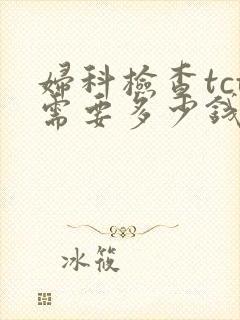 婦科檢查tc
需要多少錢
冰筱